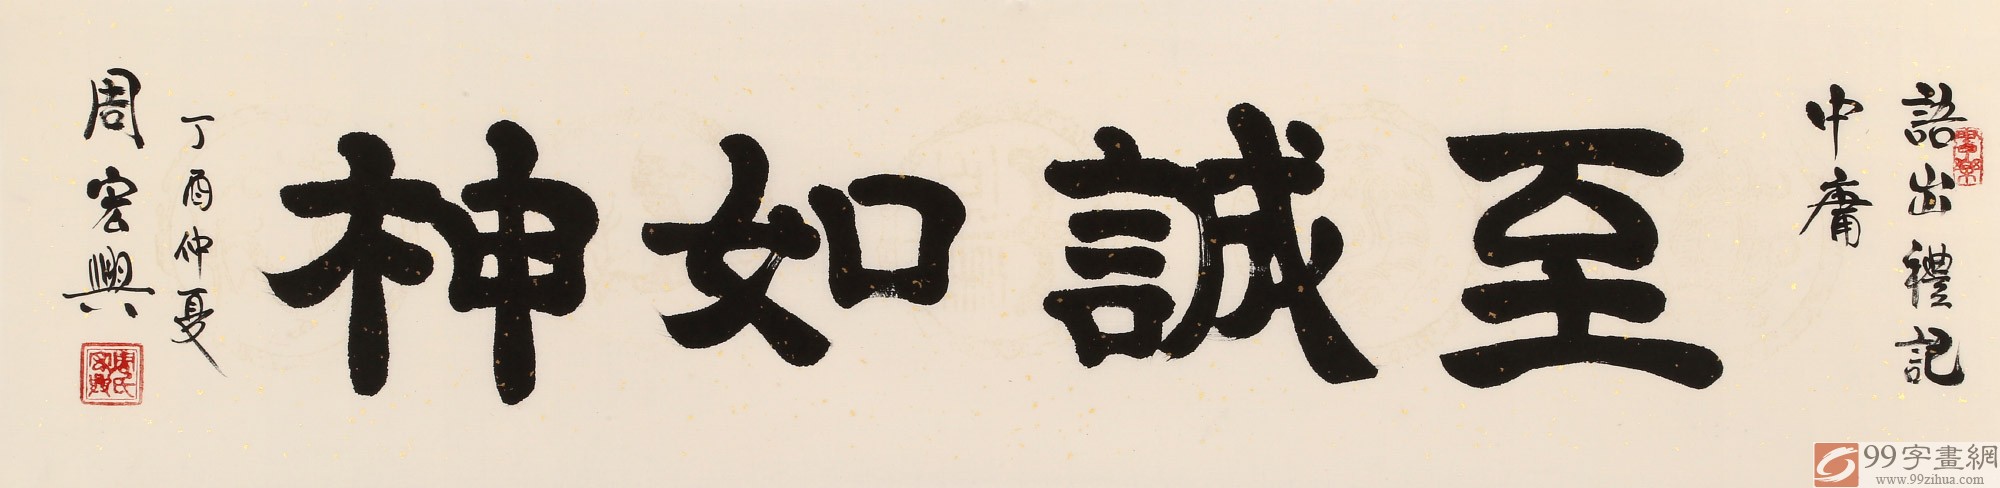 語出禮記
中庸
至誠如神
丁酉仲夏
周宏興
99字畫網
www.99zihua.com